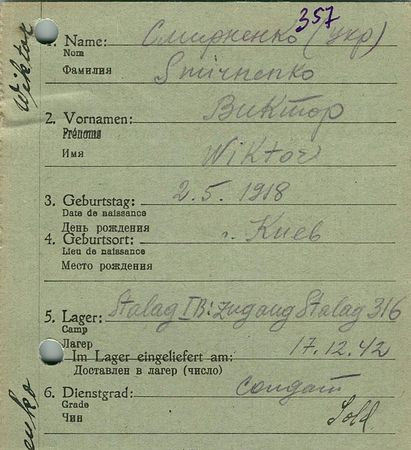 357
Wiktor
1. Name: Смирненко (укр)
Nom
Фамилия Smirnenko
2. Vornamen: Виктор
Prénoms
Имя Wiktor
3. Geburtstag: 2.5.1918
Date de naissance
День рождения
4. Geburtsort: г. Киев
Lieu de naissance
Место рождения
5. Lager: Stalag IB: Zugang Stalag 316
Camp
Лагерь
Im Lager eingeliefert am: 17.12.42
Доставлен в лагерь (число)
6. Dienstgrad: солдат
Grade
Чин Sold.
enko